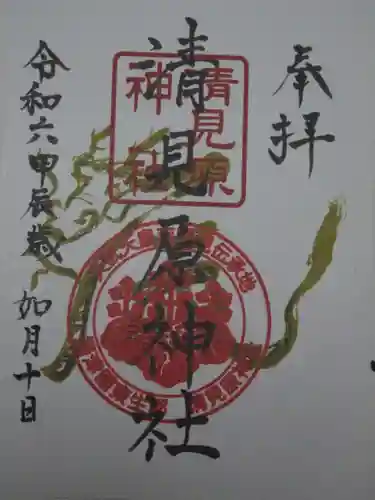 奉拝
清見原神社
令和六甲辰歳 如月十日
清見原
神社